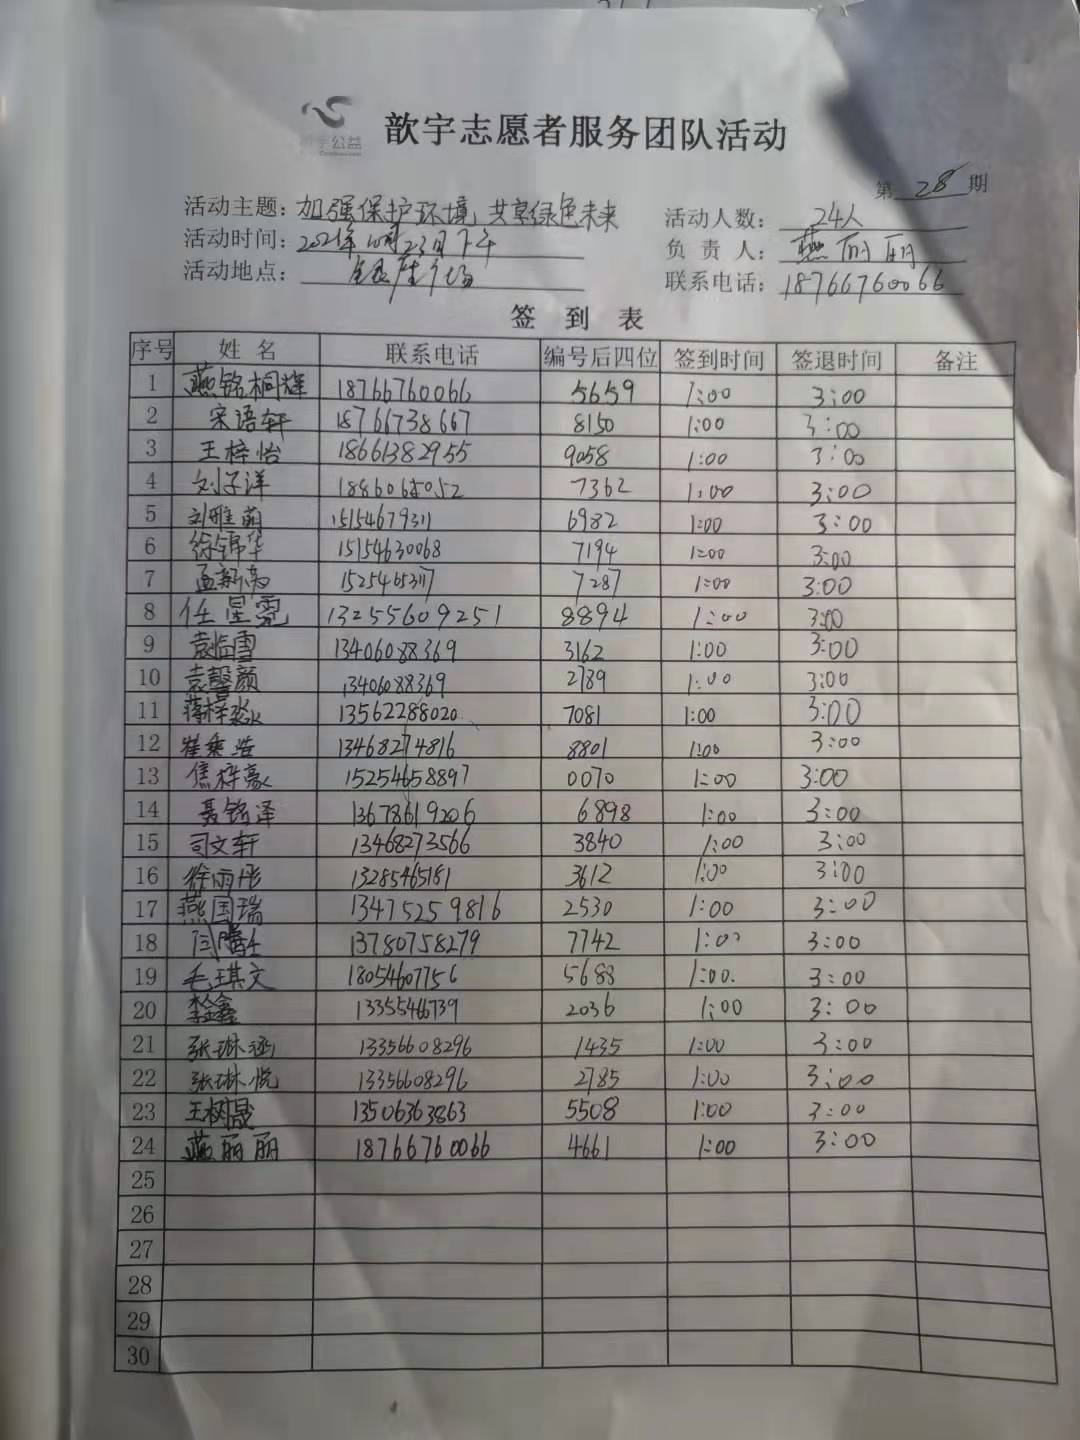 公益
歆宇志愿者服务团队活动
第 28 期
活动主题：加强保护环境，共享绿色未来 活动人数：24人
活动时间：2021年10月23日下午 负责人：燕丽丽
活动地点：银座广场 联系电话：18766760066
签到表
序号 姓名 联系电话 编号后四位 签到时间 签退时间 备注
1 燕铭桐辉 18766760066 5659 1:00 3:00
2 宋语轩 18766738667 8150 1:00 3:00
3 王梓怡 18661382955 9058 1:00 3:00
4 刘子洋 7362 1:00 3:00
5 刘雅萌 15154679311 6982 1:00 3:00
6 徐锦华 15154630068 7194 1:00 3:00
7 孟新尧 15254653117 7287 1:00 3:00
8 任星霓 13255609251 8894 1:00 3:00
9 袁临雪 13406088369 3162 1:00 3:00
10 袁馨颜 13406088369 2789 1:00 3:00
11 蒋梓淼 13562288020 7081 1:00 3:00
12 崔乘浩 13468274816 8801 1:00 3:00
13 焦梓豪 15254658897 0070 1:00 3:00
14 聂铭泽 13678619206 6898 1:00 3:00
15 司文轩 13468273566 3840 1:00 3:00
16 徐雨彤 13285465181 3612 1:00 3:00
17 燕国瑞 13475259816 2530 1:00 3:00
18 13780758279 7742 1:00 3:00
19 毛琪文 18054607756 5688 1:00. 3:00
20 李金鑫 13355466739 2036 1:00 3:00
21 张琳涵 13356608296 1435 1:00 3:00
22 张琳悦 13356608296 2785 1:00 3:00
23 王树晟 13506363863 5508 1:00 3:00
24 燕丽丽 18766760066 4661 1:00 3:00
25
26
27
28
29
30